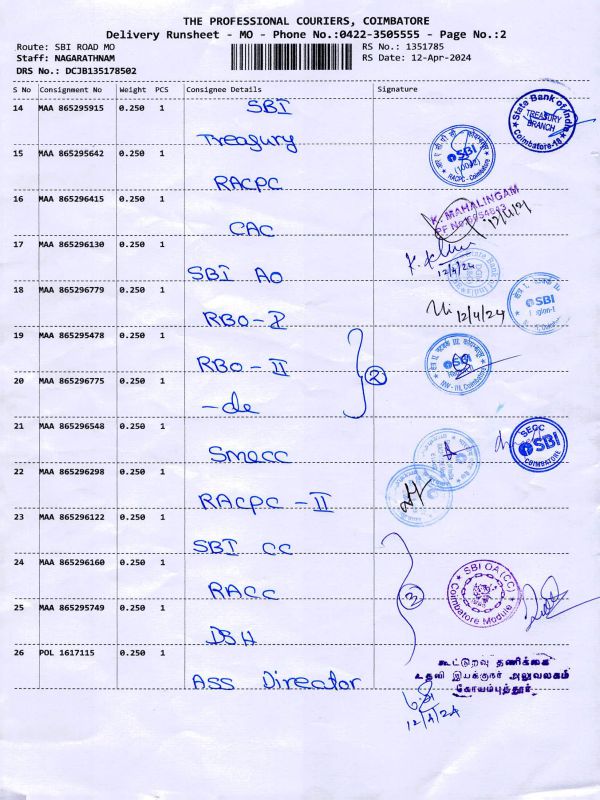 THE PROFESSIONAL COURIERS, COIMBATORE
Delivery Runsheet - MO - Phone No.:0422-3505555 - Page No.:2
Route: SBI ROAD MO
RS No.: 1351785
Staff: NAGARATHNAM
RS Date: 12-Apr-2024
DRS No.: DCJB135178502
S No Consignment No Weight PCS Consignee Details Signature
14 MAA 865295915 0.250 1 SBI
Treasury
State Bank of India
TREASURY
BRANCH
Coimbatore-18
15 MAA 865295642 0.250 1
RACPC
SBI
RACPC - Coimbatore
16 MAA 865296415 0.250 1
CAC
K. MAHALINGAM
12/4/24
17 MAA 865296130 0.250 1
SBI AO
12/4/24
18 MAA 865296779 0.250 1
RBO-I
12/4/24
SBI
19 MAA 865295478 0.250 1
RBO-II
SBI
20 MAA 865296775 0.250 1
-do
2
21 MAA 865296548 0.250 1
SMECC
SBI
COIMBATORE
22 MAA 865296298 0.250 1
RACPC-II
23 MAA 865296122 0.250 1
SBI CC
24 MAA 865296160 0.250 1
RACC
3
SBI OA (CC)
Coimbatore Module
25 MAA 865295749 0.250 1
DSH
26 POL 1617115 0.250 1
Ass Director
கூட்டுறவு தணிக்கை
உதவி இயக்குநர் அலுவலகம்
கோயம்புத்தூர்
12/4/24